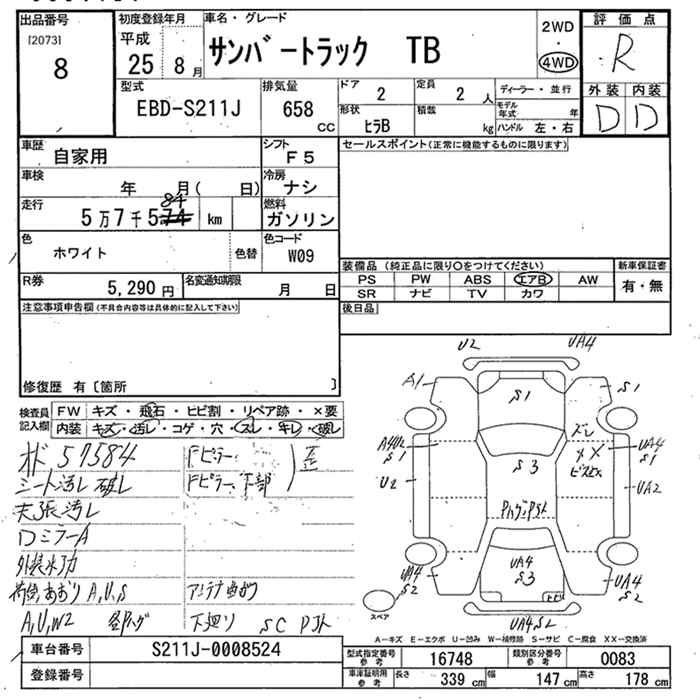 出品番号 [2073] 8
初度登録年月 平成 25 8 月
車名・グレード サンバートラック TB
2WD
4WD
評価点 R
型式 EBD-S211J
排気量 658 CC
ドア 2
定員 2 人
ディーラー・並行
モデル年式 年
形状 ヒラB
積載 kg
ハンドル 左・右
外装 内装
D D
車歴 自家用
シフト F5
セールスポイント(正常に機能するものに限ります)
車検 年 月( 日)
冷房 ナシ
走行 5万7千574 84 km
燃料 ガソリン
色 ホワイト
色替
色コード W09
装備品 (純正品に限り○をつけてください)
新車保証書
PS PW ABS エアB AW
有・無
SR ナビ TV カワ
R券 5,290 円
名変通知期限 月 日
後日品
注意事項申告欄(不具合内容等は具体的に記入して下さい)
修復歴 有 〔箇所 〕
検査員記入欄
FW キズ・飛石・ヒビ割・リペア跡・×要
内装 キズ・汚レ・コゲ・穴・スレ・キレ・破レ
57584
Fピラー
シート汚レ 破レ
Fピラー下部
天張汚レ
ロミラーA
A,U,S
A,U,W2
下廻リ SC
U2
UA4
A1
S1
S1
S1
S1
UA4
S3
U2
UA2
UA4
S3
UA4
S2
UA4
S2
スペア
A-キズ E-エクボ U-凹み W-補修跡 S-サビ C-腐食 XX-交換済
車台番号 S211J-0008524
登録番号
型式指定番号 参考 16748
類別区分番号 参考 0083
車庫証明用 参考 長さ 339 cm 幅 147 cm 高さ 178 cm